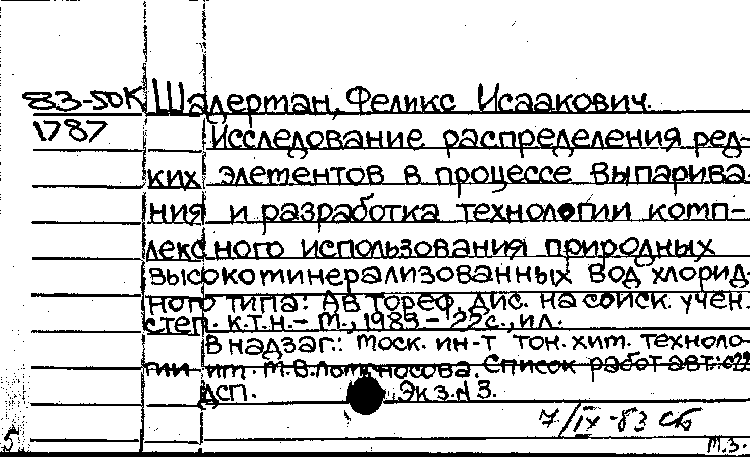 83-50К Шадерман, Феликс Исаакович.
1787 Исследование распределения ред-
ких элементов в процессе выпарива-
ния и разработка технологии комп-
лексного использования природных
высокоминерализованных вод хлорид-
ного типа: Автореф. дис. на соиск. учен.
степ. к.т.н. – М., 1983 – 22с., ил.
В надзаг.: Моск. ин-т тон. хим. техноло-
гии им. М.В.Ломоносова. Список работ авт.: с22
ДСП. Экз.№3.
7/IX-83
М.З.
5